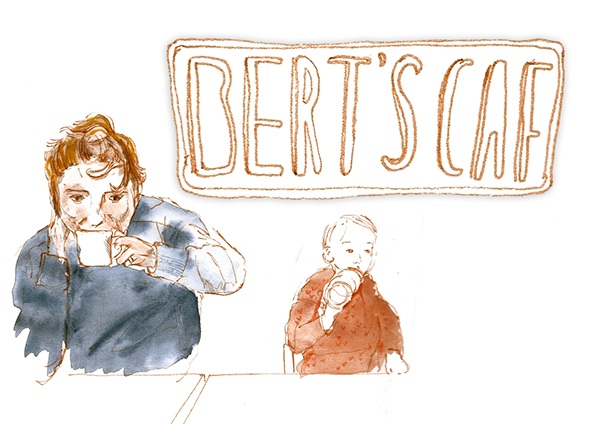 BERT'S CAF